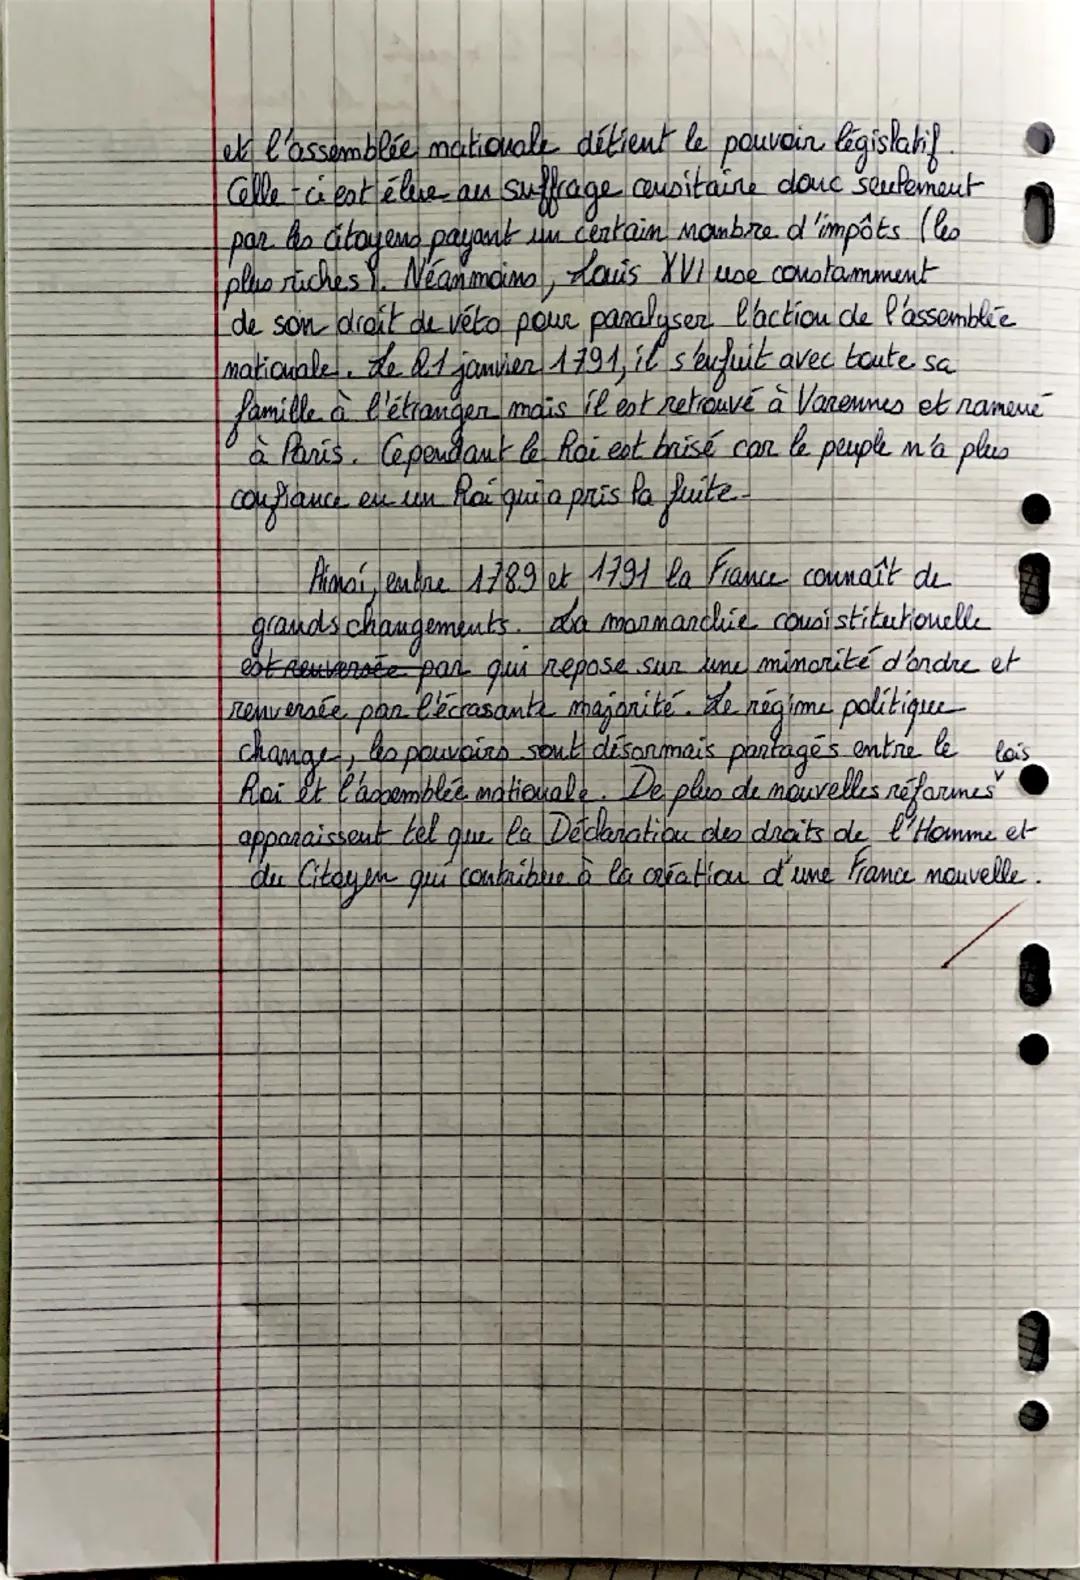 et l'assemblée nationale détient le pouvoir législatif.
Celle-ci est élue au suffrage censitaire donc seulement
par les citoyens payant un certain nombre d'impôts (les
plus riches). Néanmoins, Louis XVI use constamment
de son droit de véto pour paralyser l'action de l'assemblée
nationale. Le 21 janvier 1791, il s'enfuit avec toute sa
famille à l'étranger mais il est retrouvé à Varennes et ramené
à Paris. Cependant le Roi est brisé car le peuple n'a plus
confiance en un Roi qui a pris la fuite.
Ainsi, entre 1789 et 1791 la France connaît de
grands changements. La monmarchie consistitutionelle
est renversée par qui repose sur une minorité d'ordre et
renversée par l'écrasante majorité. Le régime politique
change, les pouvoirs sont désormais partagés entre le
lois
Roi et l'assemblée nationale. De plus de nouvelles réformes
apparaissent tel que la Déclaration des droits de l'Homme et
du Citoyen qui contribue à la création d'une France nouvelle.